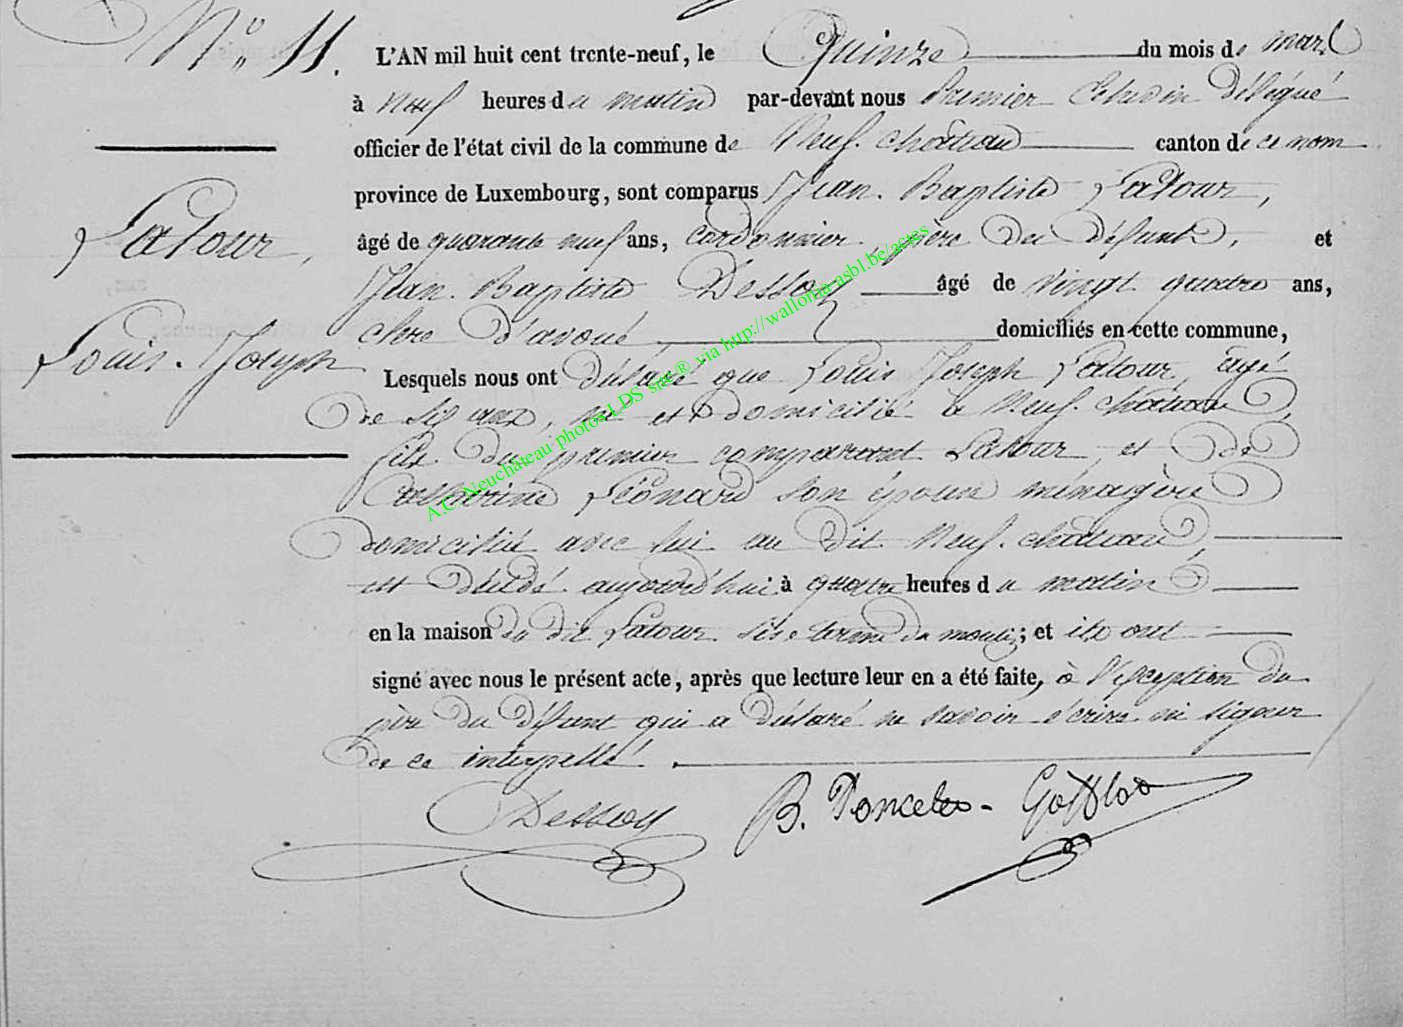 N° 11.
L'AN mil huit cent trente-neuf, le Quinze du mois de mars
à neuf heures du matin par-devant nous Premier Echevin délégué
officier de l'état civil de la commune de Neufchâteau canton de ce nom
province de Luxembourg, sont comparus Jean Baptiste Latour,
Latour,
âgé de quarante neuf ans, cordonnier, père du défunt, et
Jean Baptiste Dessoy âgé de vingt quatre ans,
clerc d'avoué domiciliés en cette commune,
Louis Joseph
Lesquels nous ont déclaré que Louis Joseph Latour, âgé
de six ans, né et domicilié à Neufchâteau,
fils du premier comparant Latour et de
Catherine Léonard son épouse ménagère
domiciliée avec lui au dit Neufchâteau,
est décédé aujourd'hui à quatre heures du matin
en la maison du dit Latour sise terme du moulin; et ils ont
signé avec nous le présent acte, après que lecture leur en a été faite, à l'exception du
père du défunt qui a déclaré ne savoir écrire ni signer
de ce interpellé.
Dessoy B. Poncelet
A.C. Neuchateau photos LDS site ® via http://wallonia-asbl.be/actes